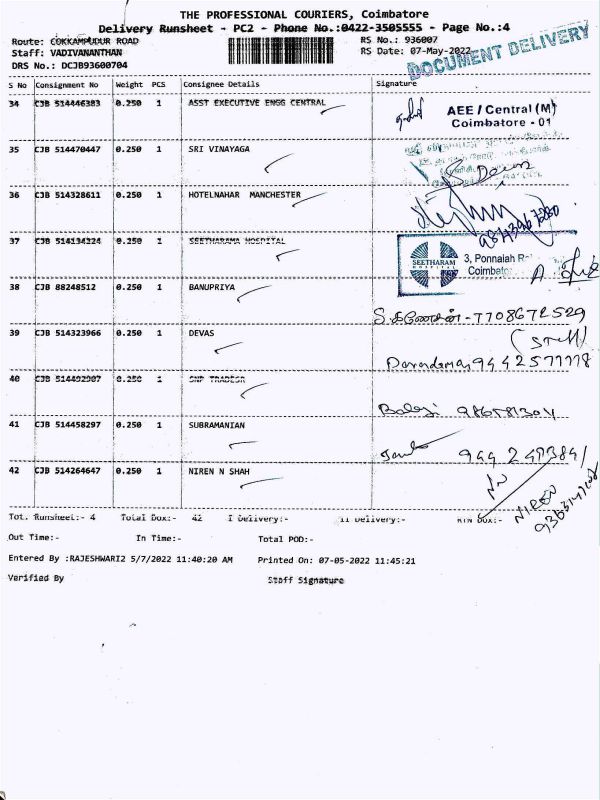 THE PROFESSIONAL COURIERS, Coimbatore
Delivery Runsheet - PC2 - Phone No.:0422-3505555 - Page No.:4
Route: COKKAMPUDUR ROAD RS No.: 936007
Staff: VADIVANANTHAN RS Date: 07-May-2022
DRS No.: DCJB93600704
DOCUMENT DELIVERY
S No Consignment No Weight PCS Consignee Details Signature
34 CJB 514446383 0.250 1 ASST EXECUTIVE ENGG CENTRAL
AEE / Central (M)
Coimbatore - 01
35 CJB 514470447 0.250 1 SRI VINAYAGA
36 CJB 514328611 0.250 1 HOTELNAHAR MANCHESTER
37 CJB 514134324 0.250 1 SEETHARAMA HOSPITAL
SEETHARAM
HOSPITAL
3, Ponnaiah
Coimbato
38 CJB 88248512 0.250 1 BANUPRIYA
7708672529
(Staff)
39 CJB 514323966 0.250 1 DEVAS
40 CJB 514492907 0.250 1 SNP TRADESR
Balaji
41 CJB 514458297 0.250 1 SUBRAMANIAN
42 CJB 514264647 0.250 1 NIREN N SHAH
NIREN
Tot. Runsheet:- 4 Total Dox:- 42 I Delivery:- II Delivery:- RTN Dox:-
Out Time:- In Time:- Total POD:-
Entered By :RAJESHWARI2 5/7/2022 11:40:20 AM Printed On: 07-05-2022 11:45:21
Verified By Staff Signature